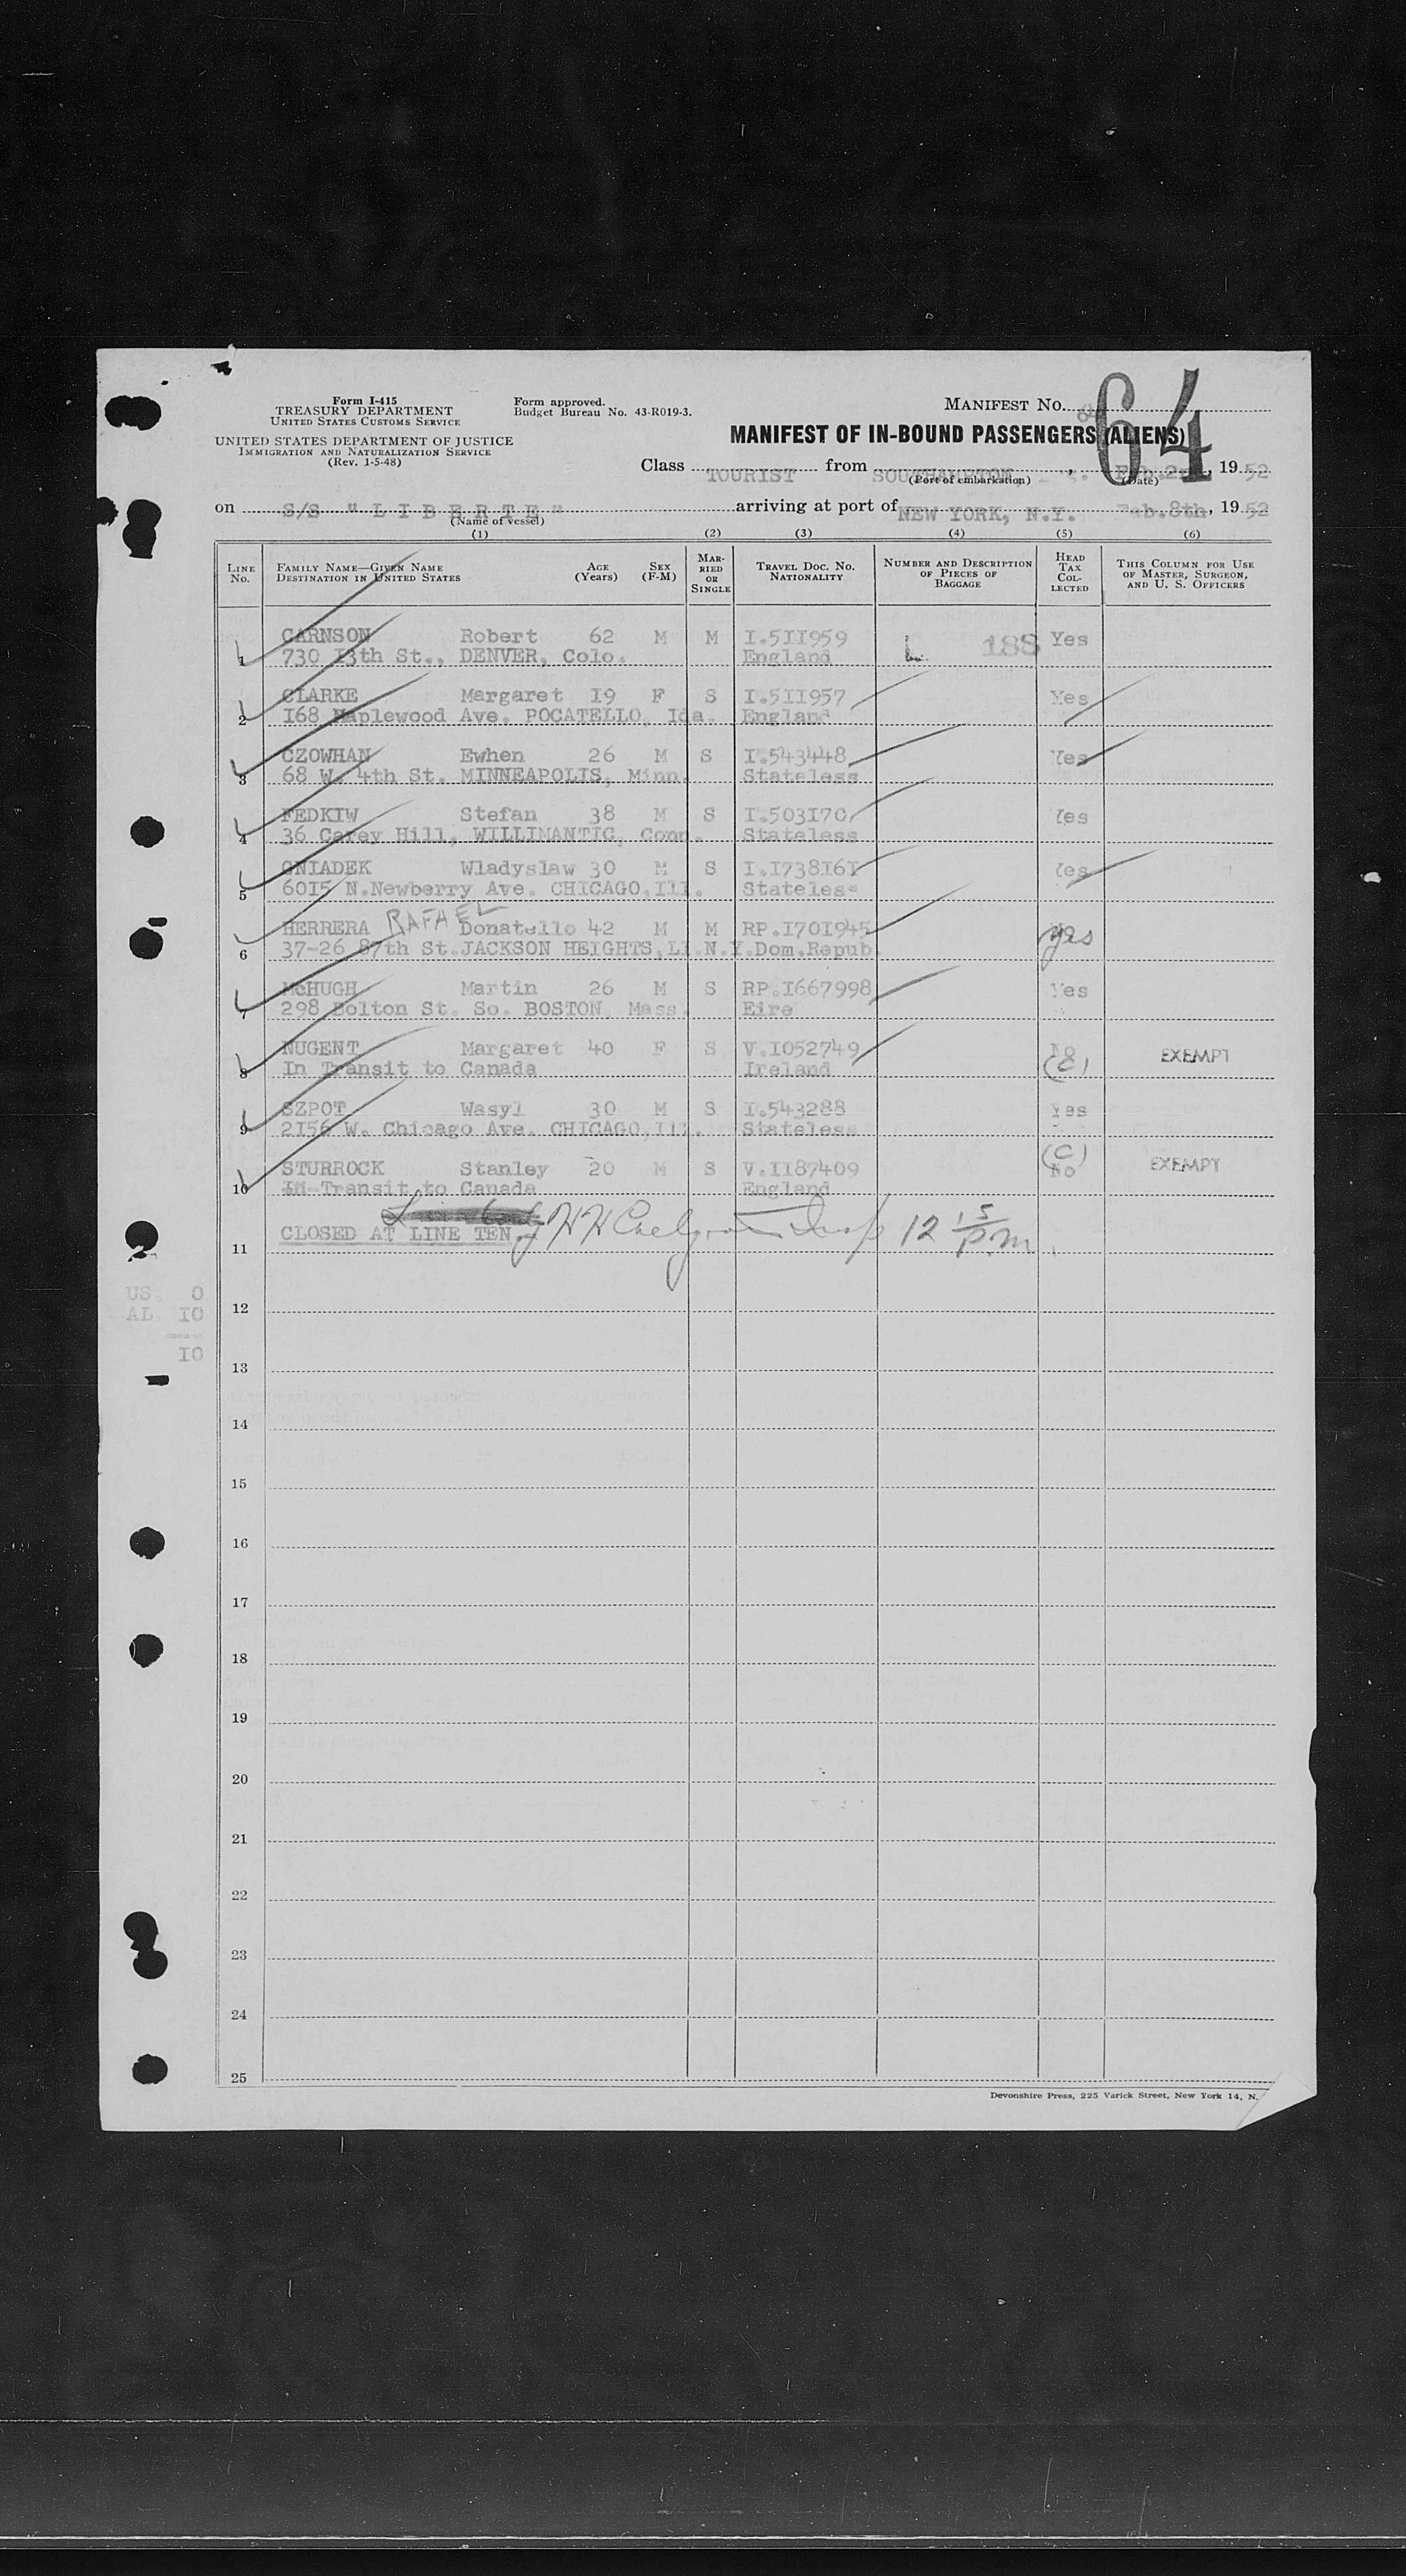 Form I-415
TREASURY DEPARTMENT
UNITED STATES CUSTOMS SERVICE
UNITED STATES DEPARTMENT OF JUSTICE
IMMIGRATION AND NATURALIZATION SERVICE
(Rev. 1-5-48)
Form approved.
Budget Bureau No. 43-R019-3.
MANIFEST NO. 64
MANIFEST OF IN-BOUND PASSENGERS (ALIENS)
Class TOURIST from SOUTHAMPTON, 1952
(Port of embarkation) (Date)
on S/S "LIBERTE" arriving at port of NEW YORK, N.Y. Feb.8th, 1952
(Name of vessel)
(1) (2) (3) (4) (5) (6)
LINE NO. FAMILY NAME—GIVEN NAME DESTINATION IN UNITED STATES AGE (Years) SEX (F-M) MARRIED OR SINGLE TRAVEL DOC. NO. NATIONALITY NUMBER AND DESCRIPTION OF PIECES OF BAGGAGE HEAD TAX COLLECTED THIS COLUMN FOR USE OF MASTER, SURGEON, AND U. S. OFFICERS
CARNSON Robert 62 M M I.511959 188 Yes
1 730 13th St., DENVER, Colo. England
CLARKE Margaret 19 F S I.511957 Yes
2 168 Maplewood Ave. POCATELLO, Ida. England
CZOWHAN Ewhen 26 M S I.543448 Yes
3 68 W. 4th St. MINNEAPOLIS, Minn. Stateless
FEDKIW Stefan 38 M S I.503170 Yes
4 36 Carey Hill, WILLIMANTIC, Conn. Stateless
GNIADEK Wladyslaw 30 M S I.1738161 Yes
5 6015 N.Newberry Ave. CHICAGO,Ill. Stateless
HERRERA RAFAEL Donatello 42 M M RP.1701945 yes
6 37-26 87th St.JACKSON HEIGHTS,LI.N.Y.Dom.Repub.
McHUGH Martin 26 M S RP.1667998 Yes
7 298 Bolton St. So. BOSTON, Mass. Eire
NUGENT Margaret 40 F S V.1052749 No EXEMPT
8 In Transit to Canada Ireland
SZPOT Wasyl 30 M S I.543288 Yes
9 2156 W. Chicago Ave. CHICAGO,Ill. Stateless
STURROCK Stanley 20 M S V.1187409 (C) No EXEMPT
10 In Transit to Canada England
CLOSED AT LINE TEN. 12 15 P.m.
11
US. 0
AL. 10
10
12
13
14
15
16
17
18
19
20
21
22
23
24
25
Devonshire Press, 225 Varick Street, New York 14, N.